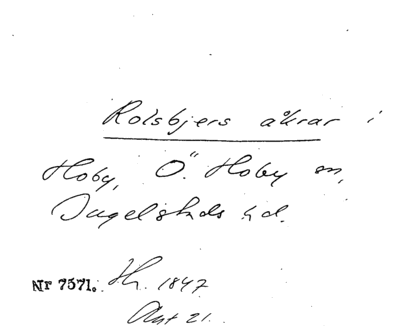 Rolsbjers åkrar i
Hoby, Ö. Hoby sn,
Ingelstads hd.
Nr 7571. Hr. 1847
Akt 21.